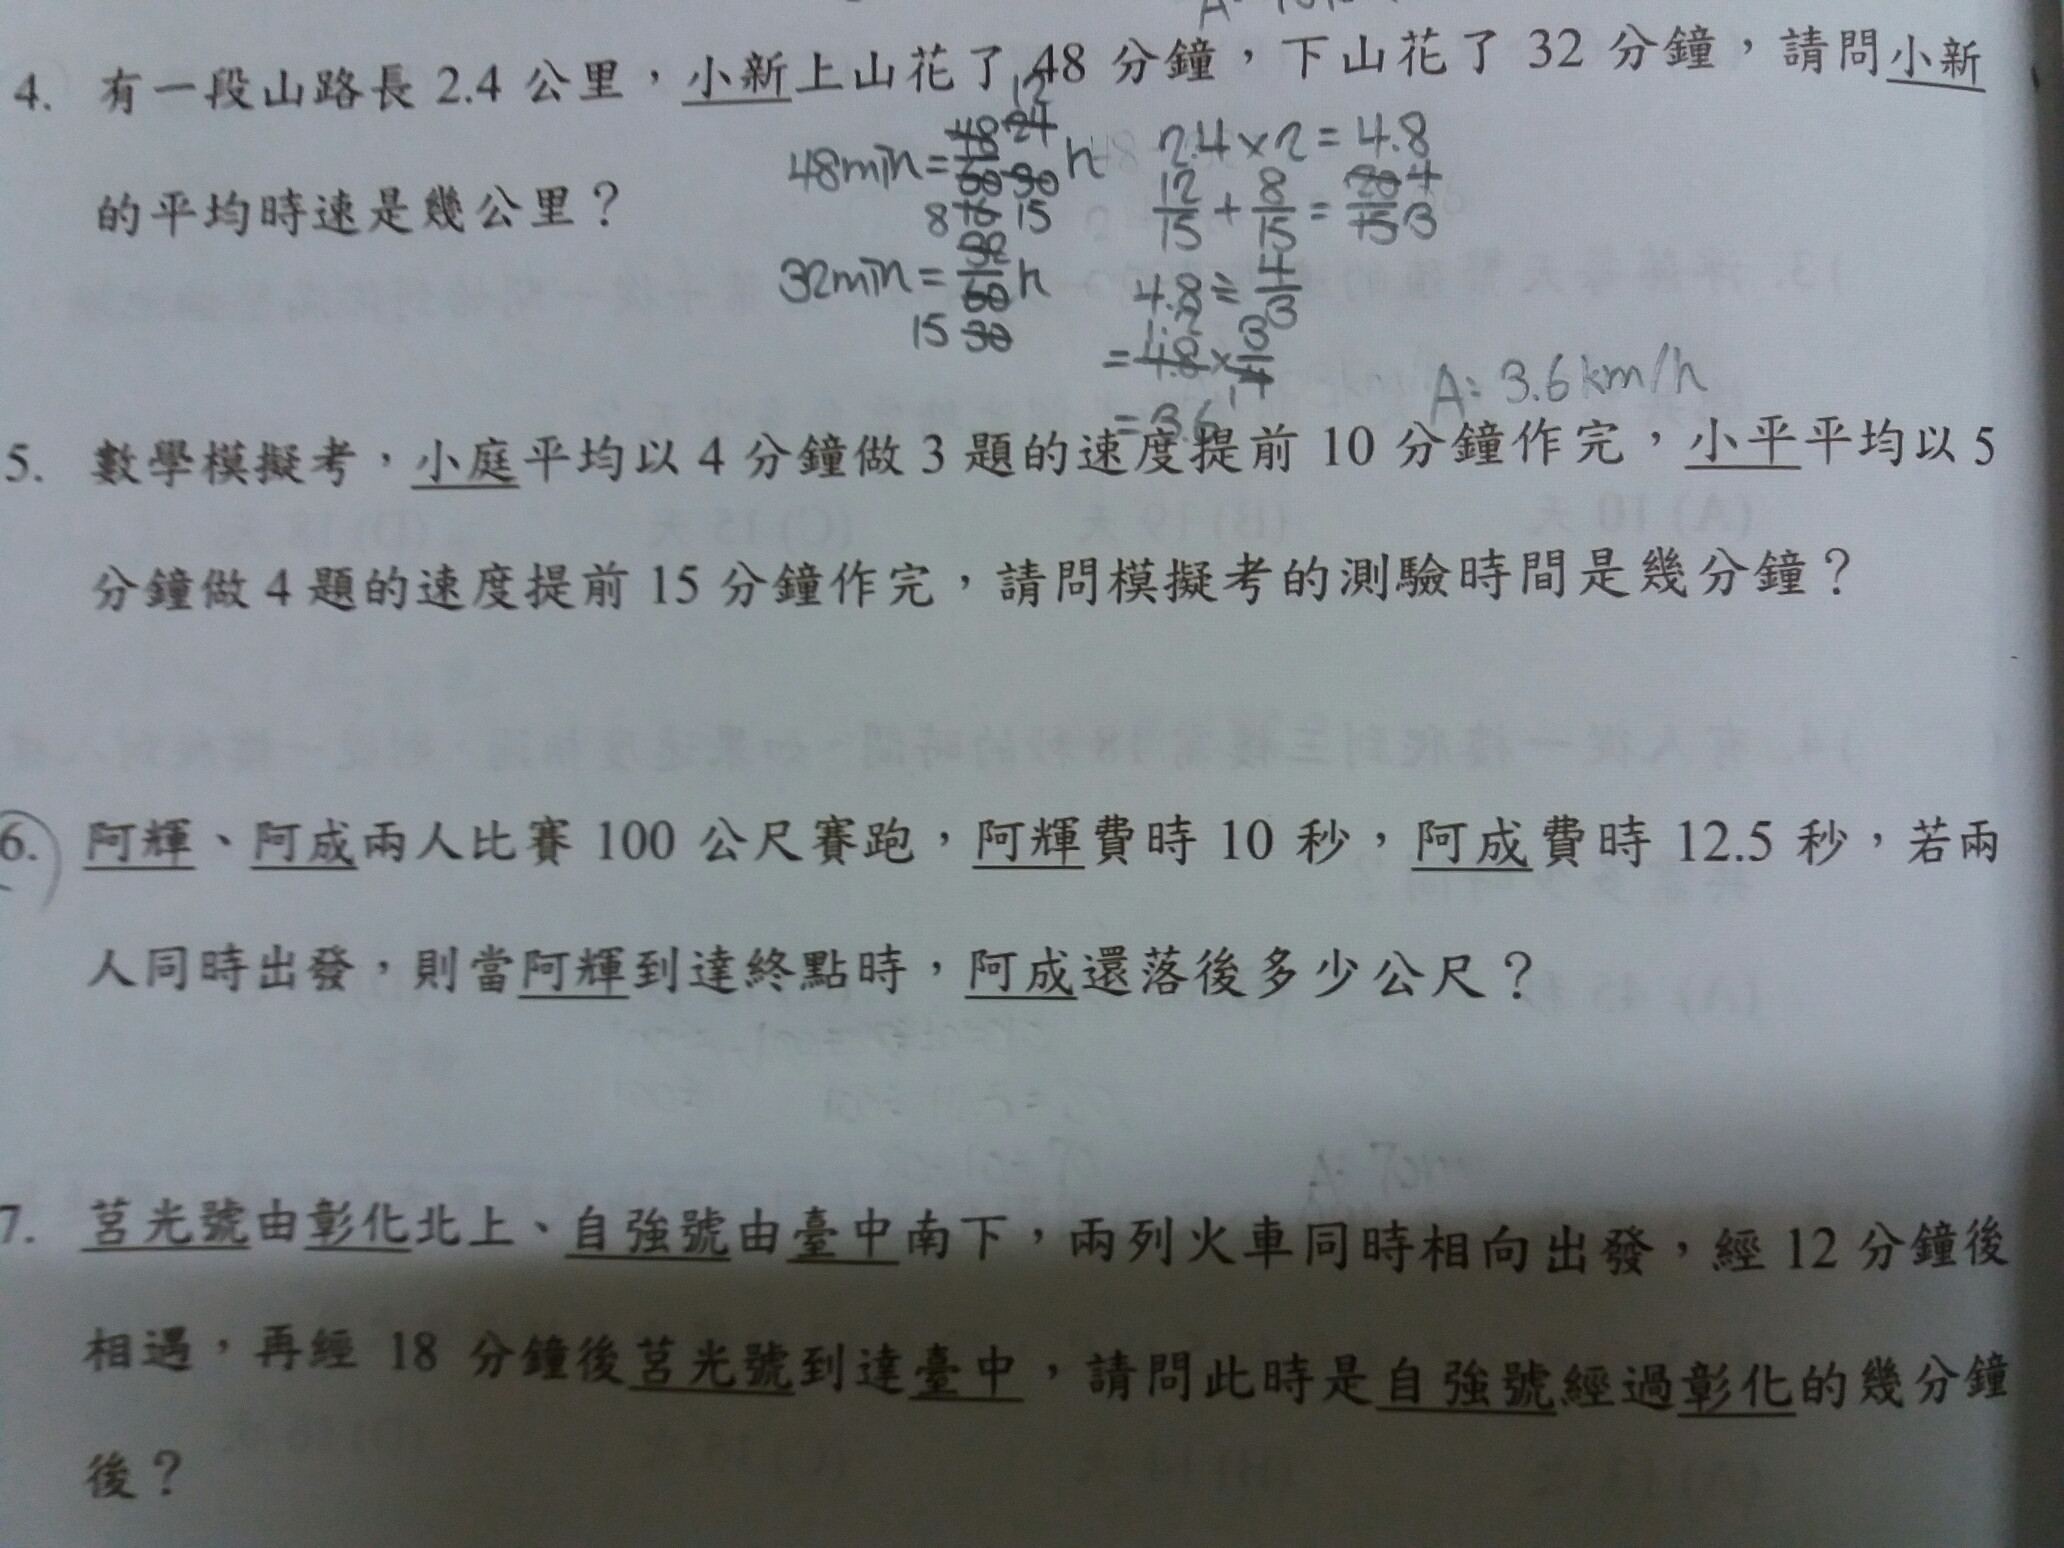 4. 有一段山路長 2.4 公里，小新上山花了 48 分鐘，下山花了 32 分鐘，請問小新
的平均時速是幾公里？
48min = 48/60 24/30 12/15 h
32min = 32/60 16/30 8/15 h
2.4×2=4.8
12/15 + 8/15 = 20/15 4/3
4.8÷4/3
=4.8×3/4
=3.6
A: 3.6km/h
5. 數學模擬考，小庭平均以 4 分鐘做 3 題的速度提前 10 分鐘作完，小平平均以 5
分鐘做 4 題的速度提前 15 分鐘作完，請問模擬考的測驗時間是幾分鐘？
6. 阿輝、阿成兩人比賽 100 公尺賽跑，阿輝費時 10 秒，阿成費時 12.5 秒，若兩
人同時出發，則當阿輝到達終點時，阿成還落後多少公尺？
7. 莒光號由彰化北上、自強號由臺中南下，兩列火車同時相向出發，經 12 分鐘後
相遇，再經 18 分鐘後莒光號到達臺中，請問此時是自強號經過彰化的幾分鐘
後？